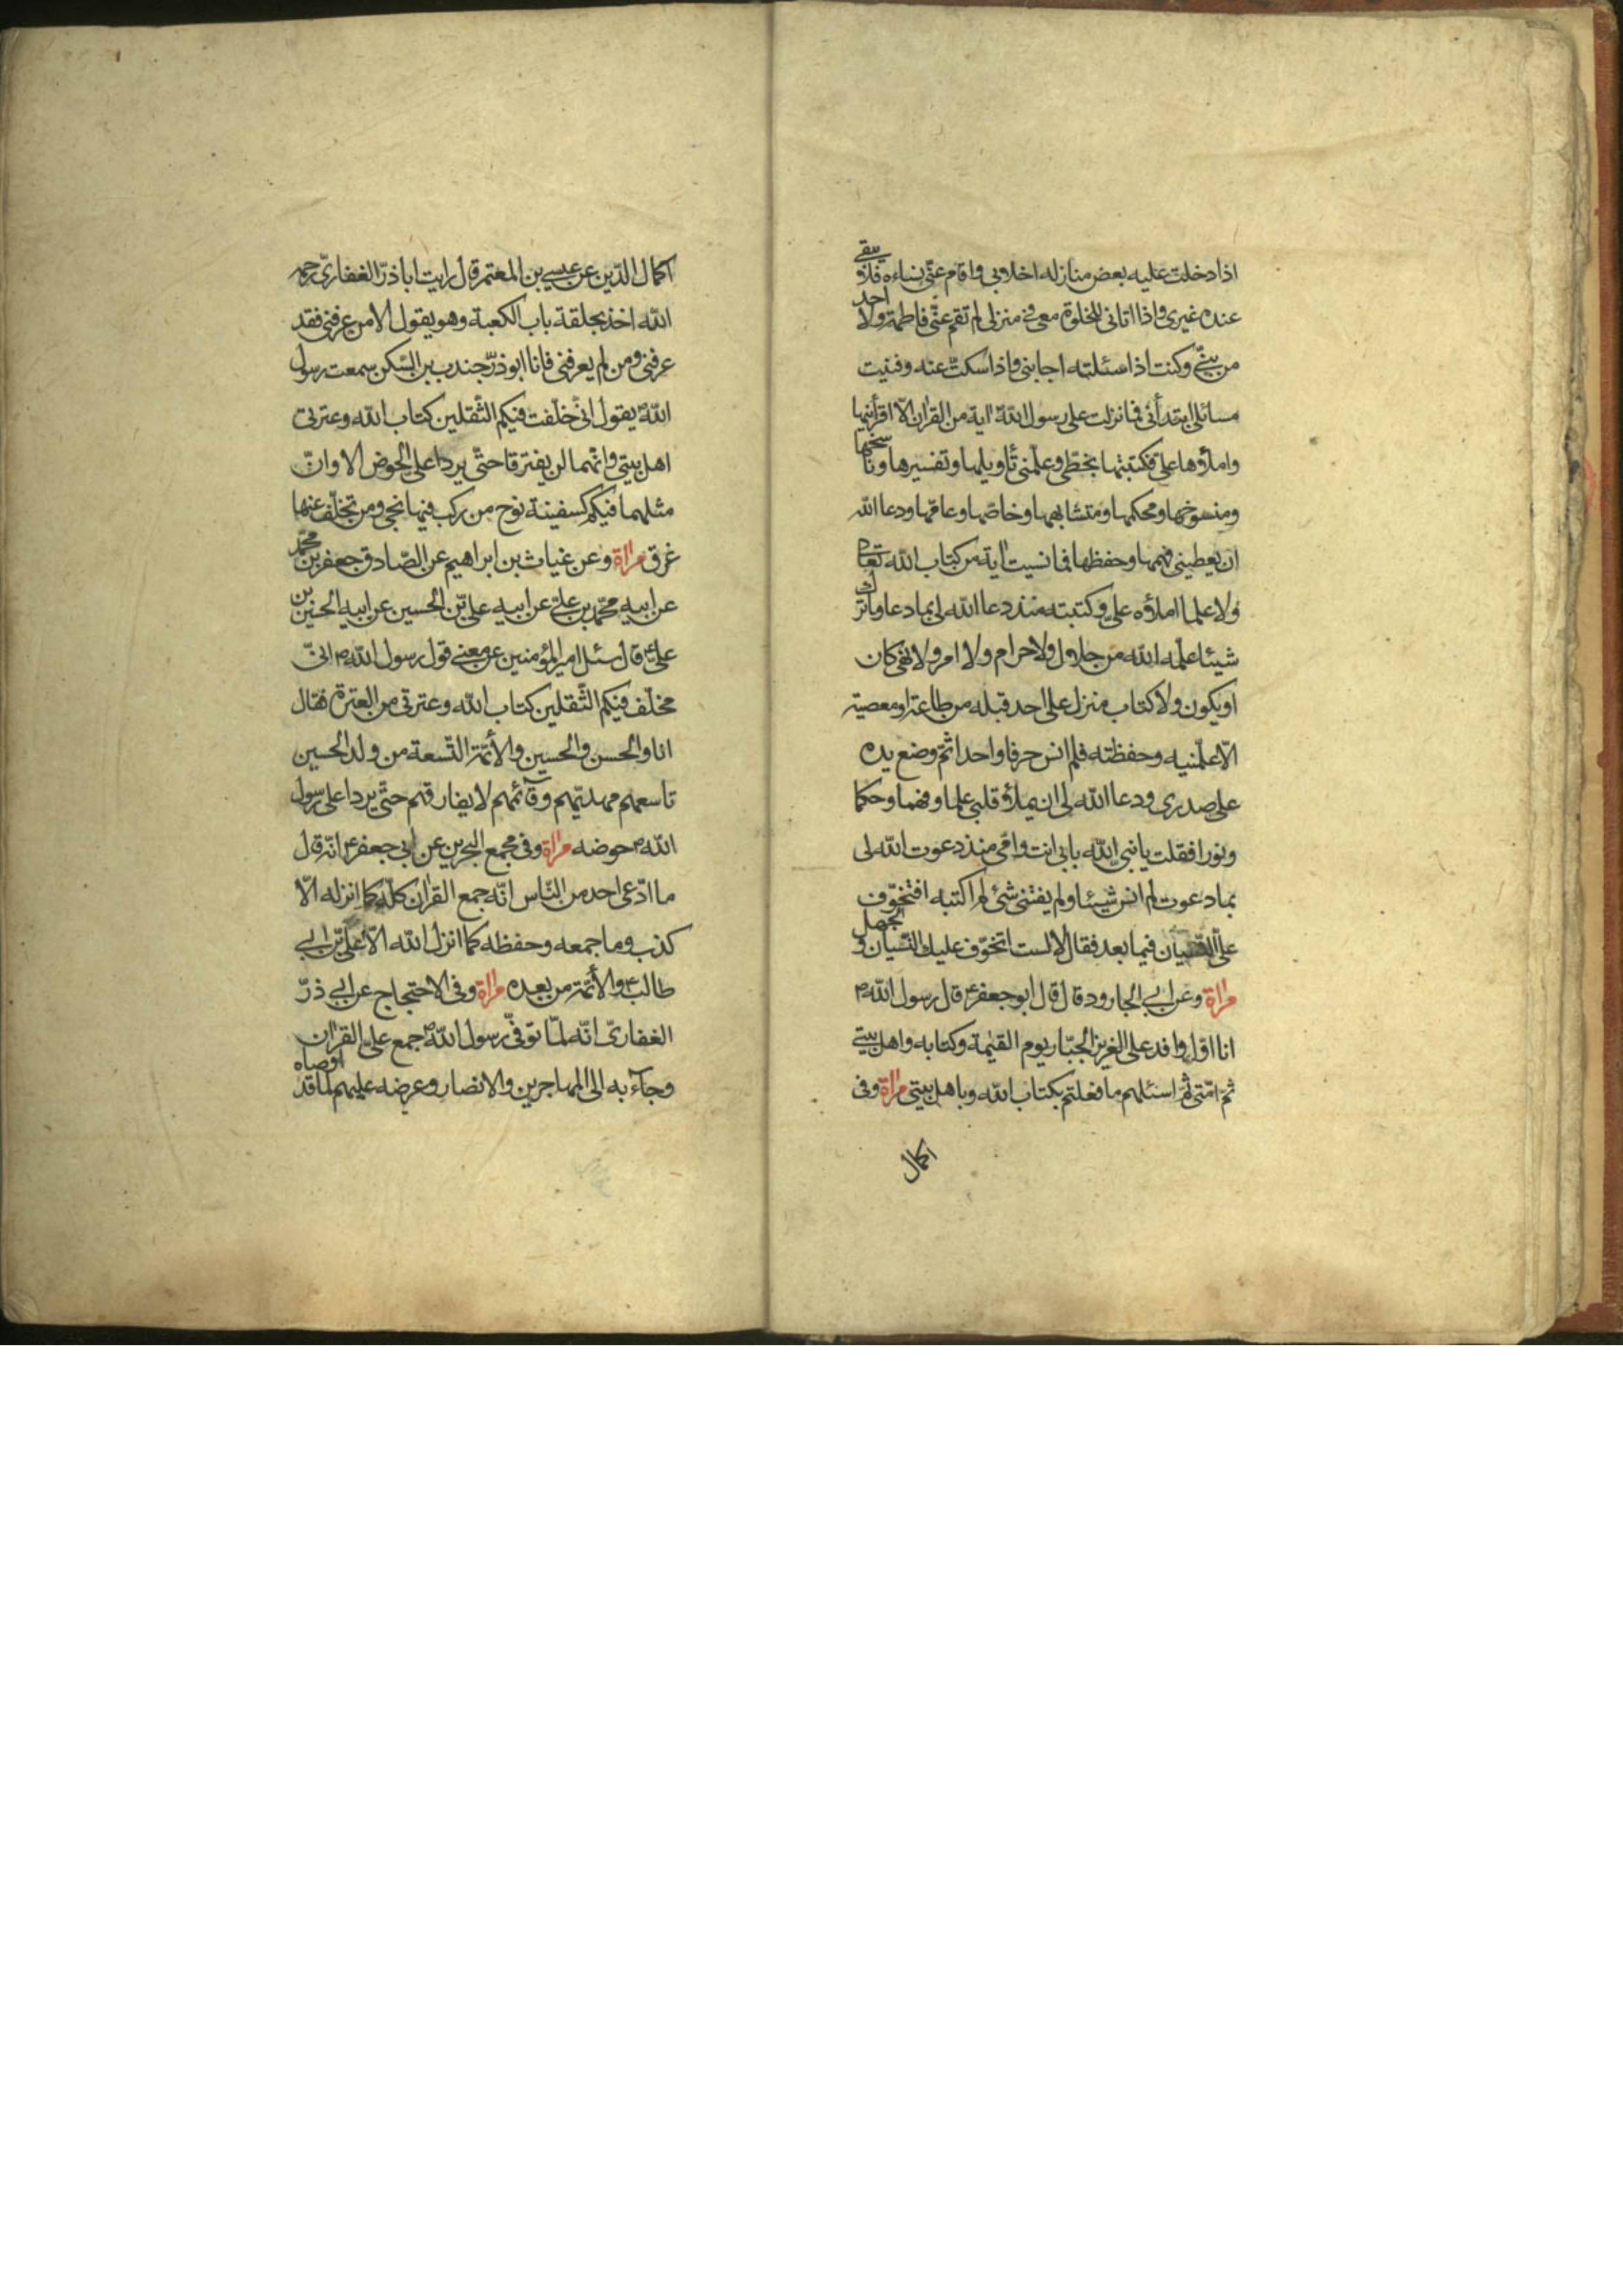 اذا دخلت عليه بعض منازله اخلابى واقام عنّى نساءه فلا يبقى
عنده غيرى واذا اتانى للخلوة معى فى منزلى لم تقم عنّى فاطمة ولا احد
من بنىّ وكنت اذا سئلته اجابنى واذا سكتّ عنه وفنيت
مسائلى ابتدأنى فما نزلت على رسول اللّه اية من القران الّا اقرأنيها
واملأوها علىّ فكتبتها بخطّى وعلّمنى تأويلها وتفسيرها وناسخها
ومنسوخها ومحكمها ومتشابهها وخاصّها وعامّها ودعا اللّه
ان يعطينى فهمها وحفظها فما نسيت اية من كتاب اللّه تعالى
ولا علما املأوه علىّ وكتبته منذ دعا اللّه لى بما دعا وما ترك
شيئا علّمه اللّه من حلال ولا حرام ولا امر ولا نهى كان
او يكون ولا كتاب منزل على احد قبله من طاعة او معصية
الّا علّمنيه وحفظته فلم انس حرفا واحدا ثمّ وضع يده
على صدرى ودعا اللّه لى ان يملأ قلبى علما وفهما وحكما
ونورا فقلت يا نبىّ اللّه بابى انت وامّى منذ دعوت اللّه لى
بما دعوت لم انس شيئا ولم يفتنى شئ لم اكتبه افتخوّف
علىّ النّسيان فيما بعد فقال لا لست اتخوّف عليك النّسيان و الجهل
مراة وعن ابى الجارود قال قال ابو جعفر ع قال رسول اللّه ص
انا اوّل وافد على العزيز الجبّار يوم القيمة وكتابه واهل بيتى
ثمّ امّتى ثمّ اسئلهم ما فعلتم بكتاب اللّه وباهل بيتى مراة وفى
اكمال
اكمال الدّين عن عيسى بن المعتمر قال رايت اباذرّ الغفارىّ رحمه
اللّه اخذ بحلقة باب الكعبة وهو يقول الا من عرفنى فقد
عرفنى ومن لم يعرفنى فانا ابوذرّ جندب بن السّكن سمعت رسول
اللّه ص يقول انّى خلّفت فيكم الثّقلين كتاب اللّه وعترتى
اهل بيتى وانّهما لن يفترقا حتّى يردا علىّ الحوض الا وانّ
مثلهما فيكم كسفينة نوح من ركب فيها نجى ومن تخلّف عنها
غرق مراة وعن غياث بن ابراهيم عن الصّادق جعفر بن محمّد
عن ابيه محمّد بن علىّ عن ابيه علىّ بن الحسين عن ابيه الحسين بن
علىّ ع قال سئل امير المؤمنين عن معنى قول رسول اللّه ص انّى
مخلّف فيكم الثّقلين كتاب اللّه وعترتى من العترة فقال
انا والحسن والحسين والأئمّة التّسعة من ولد الحسين
تاسعهم مهديّهم وقائمهم لا يفارقهم حتّى يردا على رسول
اللّه ص حوضه مراة وفى مجمع البحرين عن ابى جعفر ع انّه قال
ما ادّعى احد من النّاس انّه جمع القران كلّه كما انزله الّا
كذب وما جمعه وحفظه كما انزل اللّه الّا علىّ بن ابى
طالب ع والأئمّة من بعده مراة وفى الاحتجاج عن ابى ذرّ
الغفارىّ انّه لمّا توفّى رسول اللّه ص جمع علىّ القران
وجاء به الى المهاجرين والانصار وعرضه عليهم لما قد اوصاه